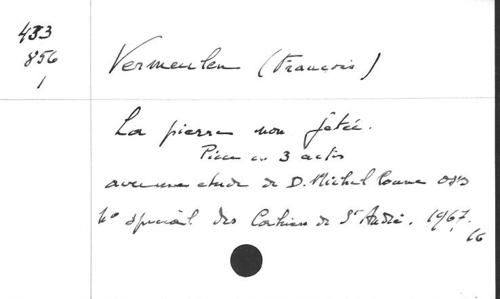 433
856
1
Vermeulen (François)
La pierre non jetée.
Pièce en 3 actes
avec une étude de D. Michel Coune OSB
N° spécial des Cahiers de St André. 1967.
16